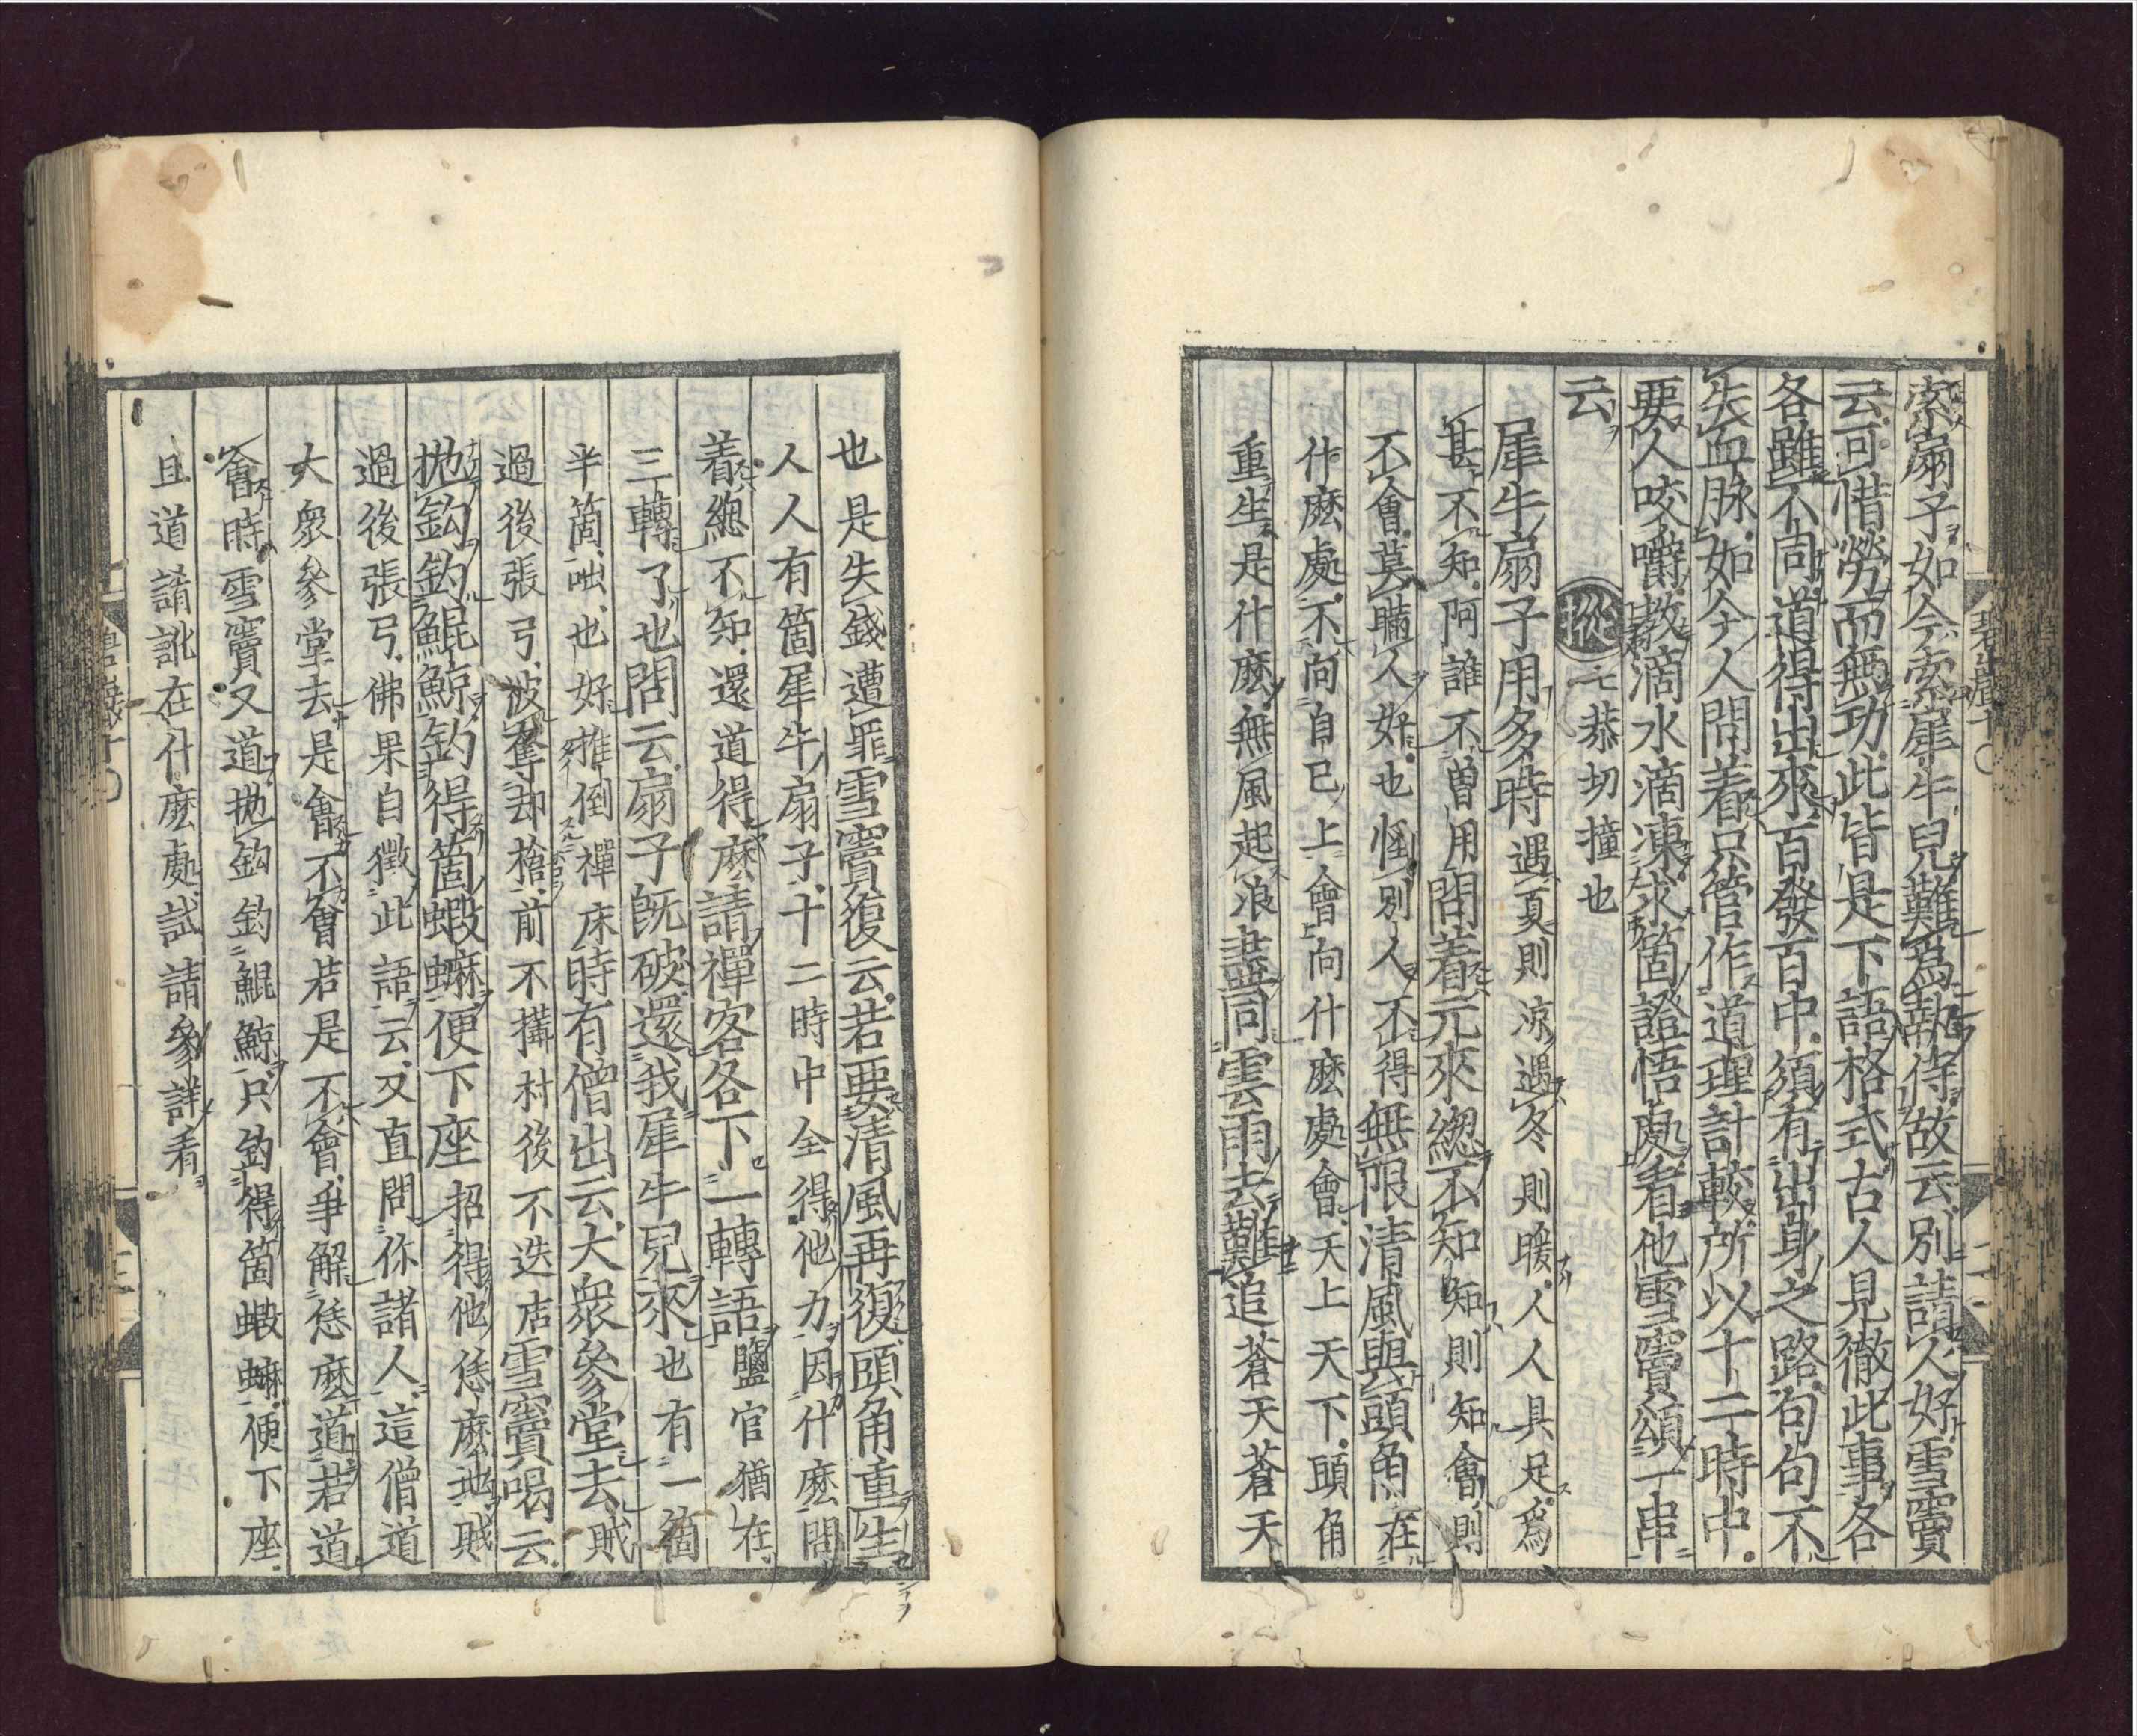 索扇子如今索犀牛兒難爲執侍故云別請人好雪竇
云可惜勞而無功此皆是下語格式古人見徹此事各
各雖不同道得出來百發百中須有出身之路句句不
失血脉如今人問着只管作道理計較所以十二時中
要人咬嚼教滴水滴凍求箇證悟處看他雪竇頌一串
云
摐 七恭切撞也
犀牛扇子用多時遇夏則涼遇冬則暖人人具足爲
甚不知阿誰不曾用問着元來緫不知知則知會則
不會莫瞞人好也怪別人不得無限清風與頭角在
什麽處不向自己上會向什麽處會天上天下頭角
重生是什麽無風起浪盡同雲雨去難追蒼天蒼天
也是失錢遭罪雪竇復云若要清風再復頭角重生
人人有箇犀牛扇子十二時中全得他力因什麽問
着緫不知還道得麽請禪客各下一轉語鹽官猶在
三轉了也問云扇子旣破還我犀牛兒來也有一箇
半箇咄也好推倒禪床時有僧出云大衆參堂去賊
過後張弓被奪却槍前不搆村後不迭店雪竇喝云
抛鈎釣鯤鯨釣得箇蝦蟆便下座招得他恁麽地賊
過後張弓佛果自徵此語云又直問你諸人這僧道
大衆參堂去是會不會若是不會爭解恁麽道若道
會時雪竇又道抛鈎釣鯤鯨只釣得箇蝦蟆便下座
且道誵訛在什麽處試請參詳看